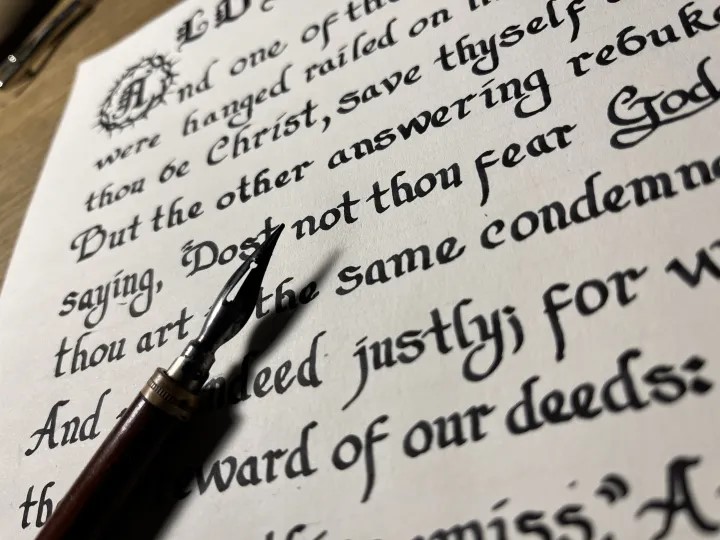 And one of the
were hanged railed on
thou be Christ, save thyself
But the other answering rebuke
saying, "Dost not thou fear God
thou art the same condemn
And indeed justly; for w
the reward of our deeds:
miss." A